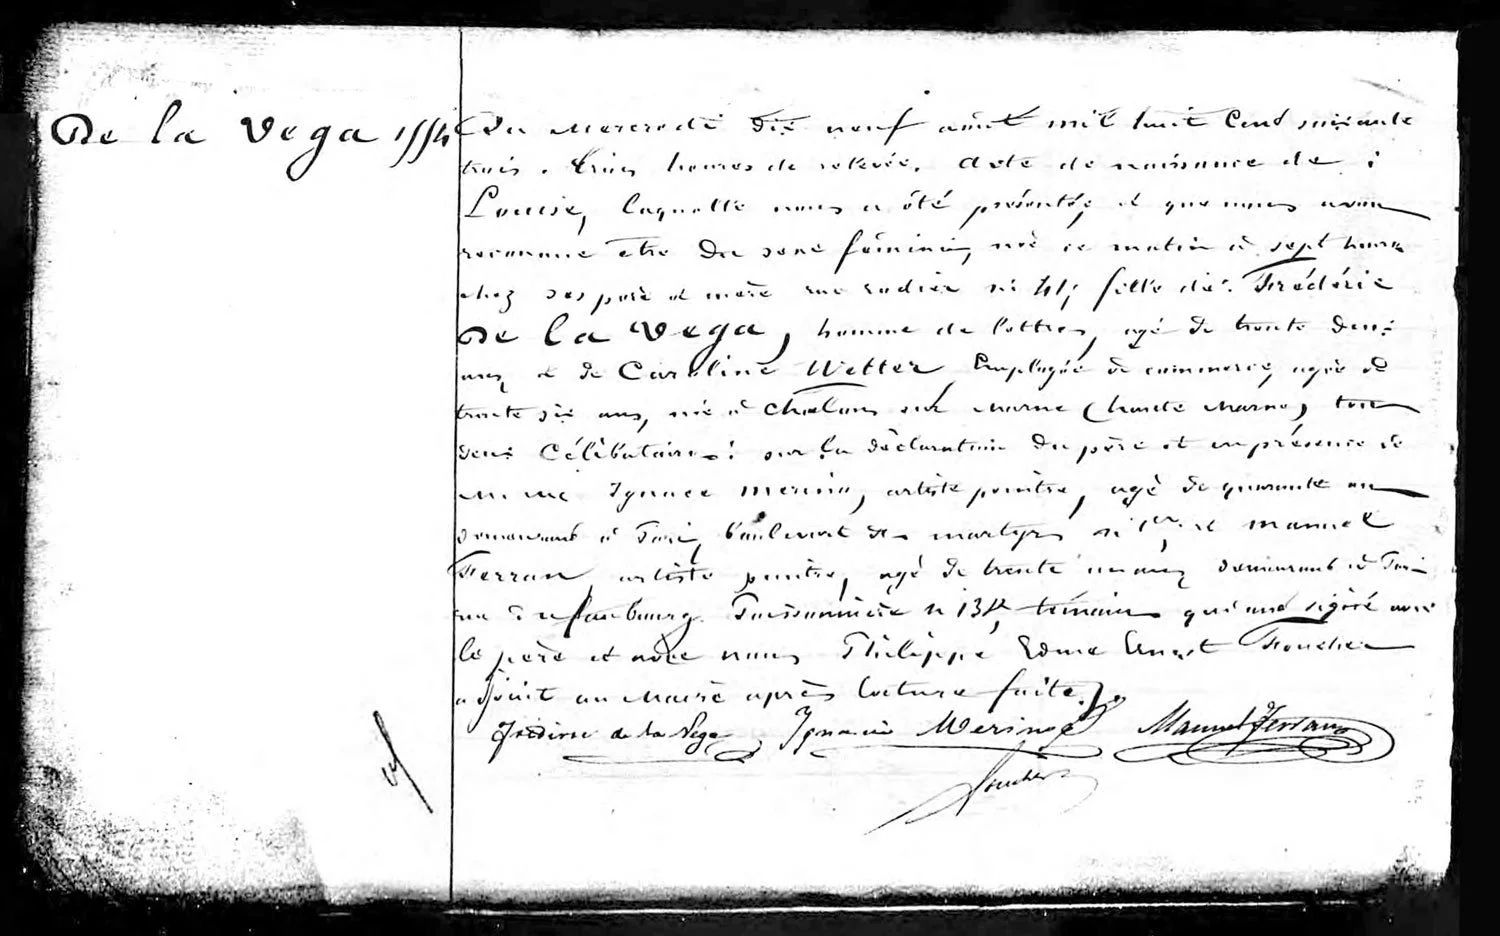 De la Vega 1554
Du Mercredi dix neuf août mil huit cent soixante
trois. trois heures de relevée. Acte de naissance de :
Louise, laquelle nous a été présentée, et que nous avons
reconnue être du sexe féminin, née ce matin à sept heures
chez ses père et mère rue rodier n° 41; fille de: Frédéric
De la Vega, homme de lettres, agé de trente deux
ans, et de Caroline Wetter, Employée de commerce, agée de
trente six ans, née à Chalons sur Marne (haute Marne) tous
deux Célibataires: sur la déclaration du père et en présence de
Ignace merino, artiste peintre, agé de quarante ans
demeurant à Paris, boulevart des martyrs n° 1er, et Manuel
Ferran, artiste peintre, agé de trente un ans, demeurant à Paris
rue du faubourg Poissonnière n° 138, témoins qui ont signé avec
le père et avec nous Philippe Edme Ernest Foucher
adjoint au Maire après lecture faite.
Frédéric de la Vega Ignacio Merino Manuel Ferran
Foucher